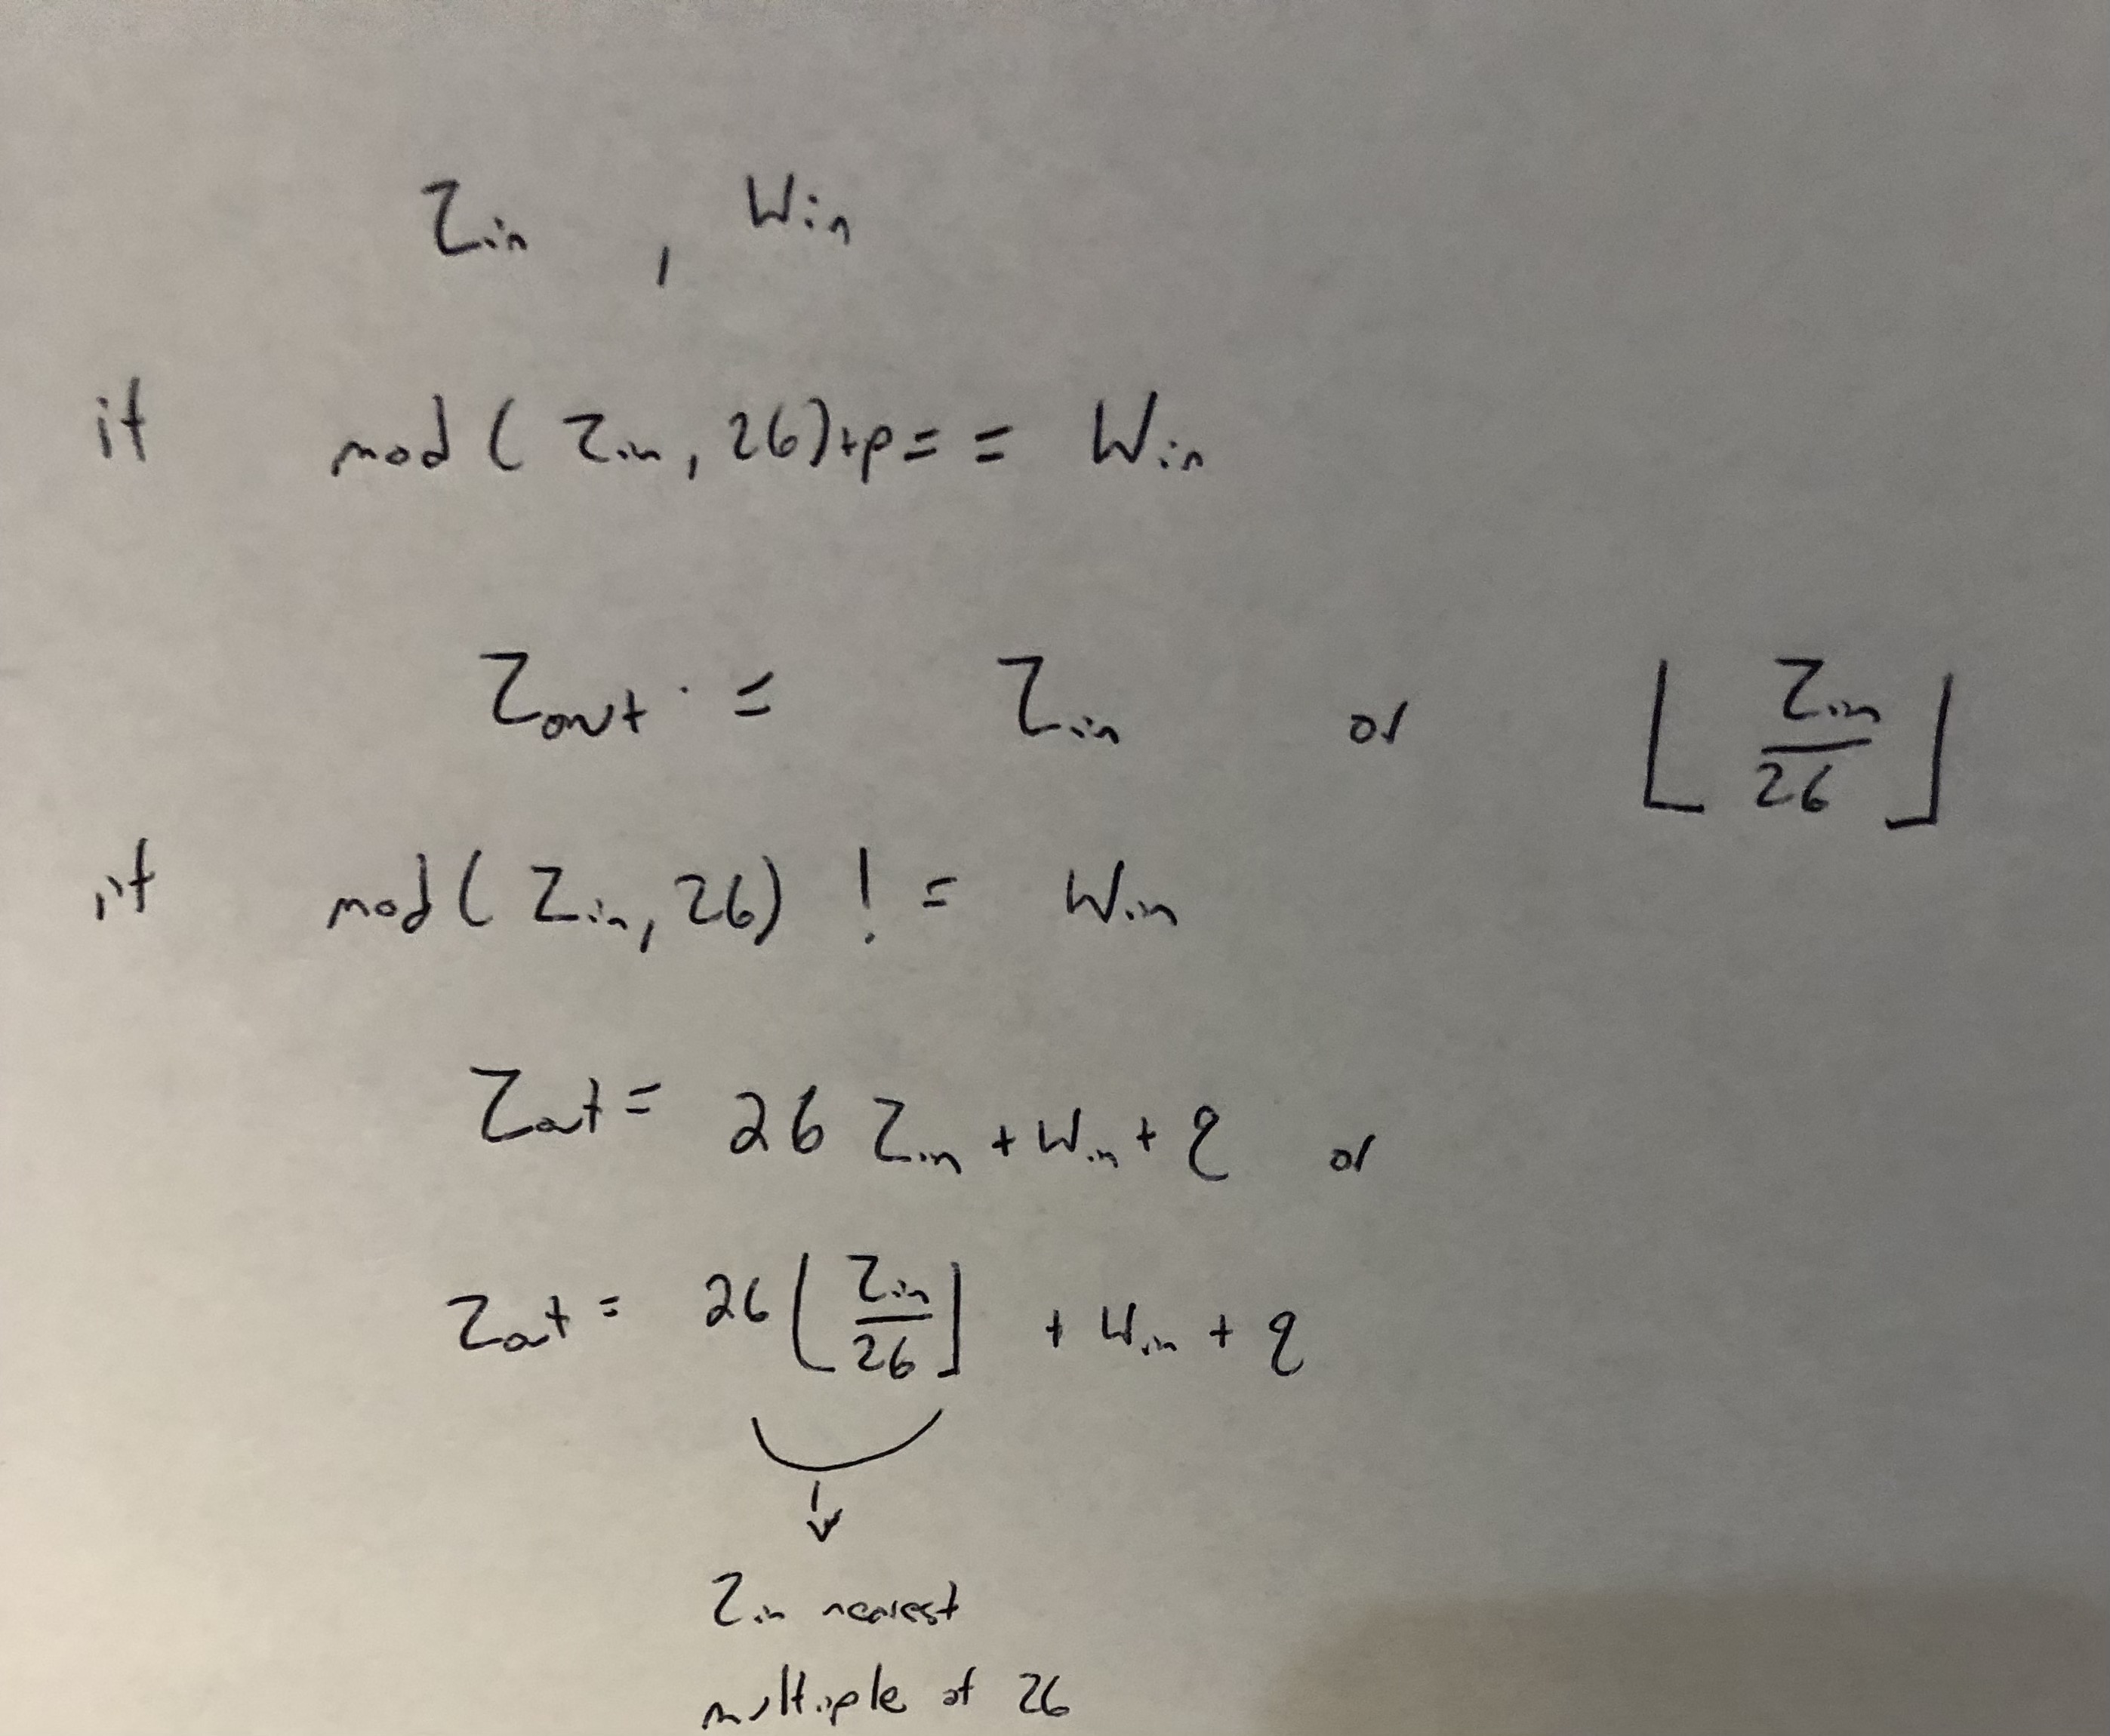 Zin , Win
if mod ( Zin, 26)+p = = Win
Zout = Zin or ⌊ Zin / 26 ⌋
if mod ( Zin, 26) ! = Win
Zout = 26 Zin + Win + q or
Zout = 26 ⌊ Zin / 26 ⌋ + Win + q
Zin nearest
multiple of 26